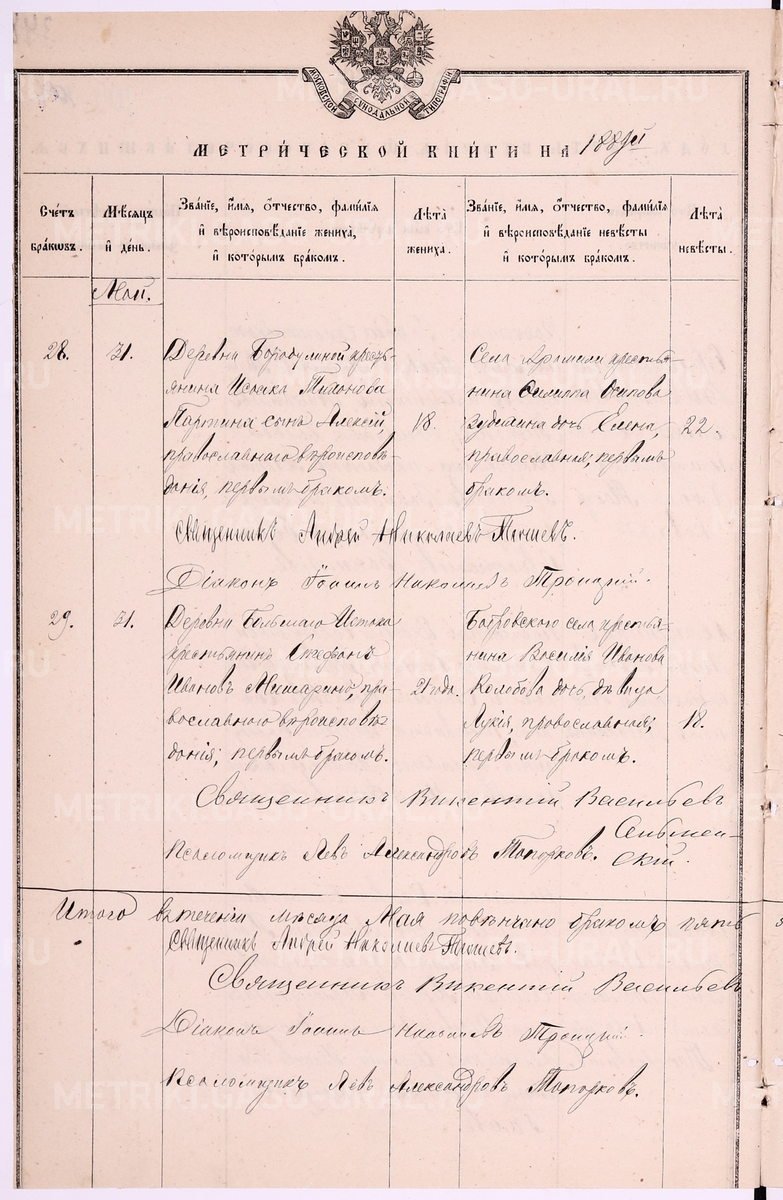 МОСКОВСКОЙ СУНОДАЛЬНОЙ ТИПОГРАФІИ
МЕТРИ́ЧЕСКОЙ КНИ́ГИ НА 1889й
Сче́тъ бра́кѡвъ.
Мѣ́сѧцъ и де́нь.
Зва́ніе, и́мѧ, ѻ҆́тчество, фами́лїѧ и҆ вѣроисповѣ́данїе жениха̀, и҆ кото́рымъ бра́комъ.
Лѣ́та жениха̀.
Зва́ніе, и́мѧ, ѻ҆́тчество, фами́лїѧ и҆ вѣроисповѣ́данїе невѣ́сты и҆ кото́рымъ бра́комъ.
Лѣ́та невѣ́сты.
Май.
28. 31.
Деревни Бородулиной кресть-
янина Исаака Тихонова
Партина сынъ Алексій,
православнаго вѣроисповѣ-
данія, первымъ бракомъ.
18.
Села Арамили крестья-
нина Филиппа Осипова
дочь Елена,
православная, первымъ
бракомъ.
22.
Священникъ Андрей Николаевъ
Діаконъ Іоаннъ Николаевъ Троицкій.
29. 31.
Деревни Большаго Истока
крестьянинъ Стефанъ
Ивановъ Мишаринъ, пра-
вославнаго вѣроисповѣ-
данія, первымъ бракомъ.
21 года.
села крестья-
нина Василія Иванова
Колобова дочь, дѣвица
Лукія, православная,
первымъ бракомъ.
18.
Священникъ Викентій Васильевъ
Сельмен-
скій.
Псаломщикъ Левъ Александровъ Топорковъ.
Итого въ теченіи мѣсяца Мая повѣнчано бракомъ пять
Священникъ Андрей Николаевъ
Священникъ Викентій Васильевъ
Діаконъ Іоаннъ Николаевъ Троицкій.
Псаломщикъ Левъ Александровъ Топорковъ.